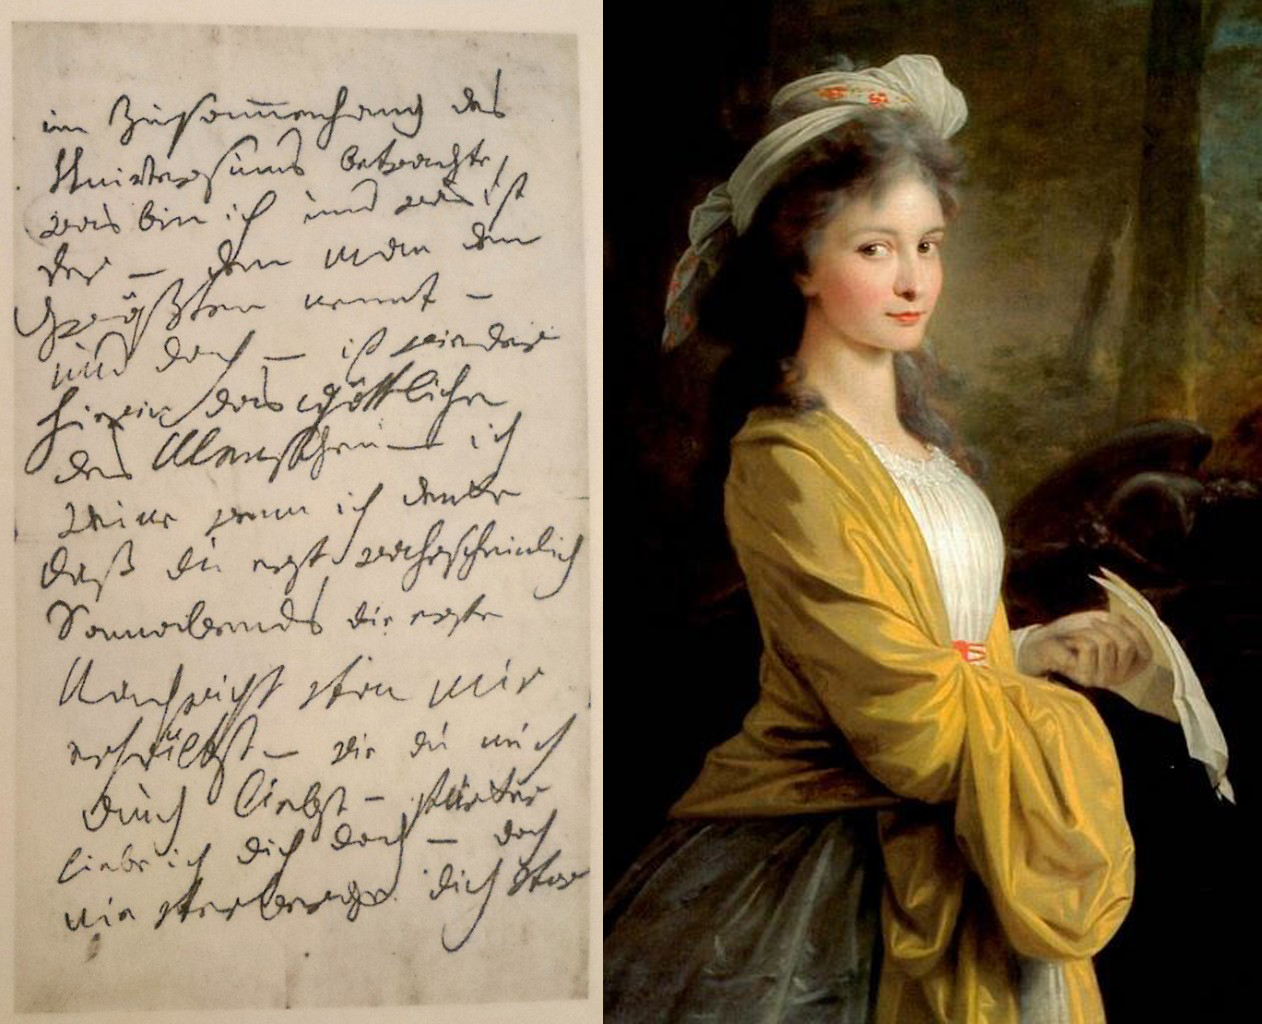 im Zusammenhang des
Universums betrachte,
was bin ich und was ist
der — den man den
Größten nennt —
und doch — ist wieder
hierin das Göttliche
des Menschen — ich
weine wenn ich denke
daß du erst wahrscheinlich
Sonnabends die erste
Nachricht von mir
erhältst — wie du mich
auch liebst — stärker
liebe ich dich doch — doch
nie verberge dich vor